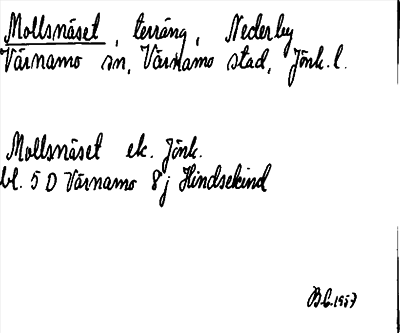 Mollsnäset, terräng, Nederby
Värnamo sn, Värnamo stad, Jönk. l.
Mollsnäset ek. Jönk.
bl. 5 D Värnamo 8j Hindsekind
BL 1957